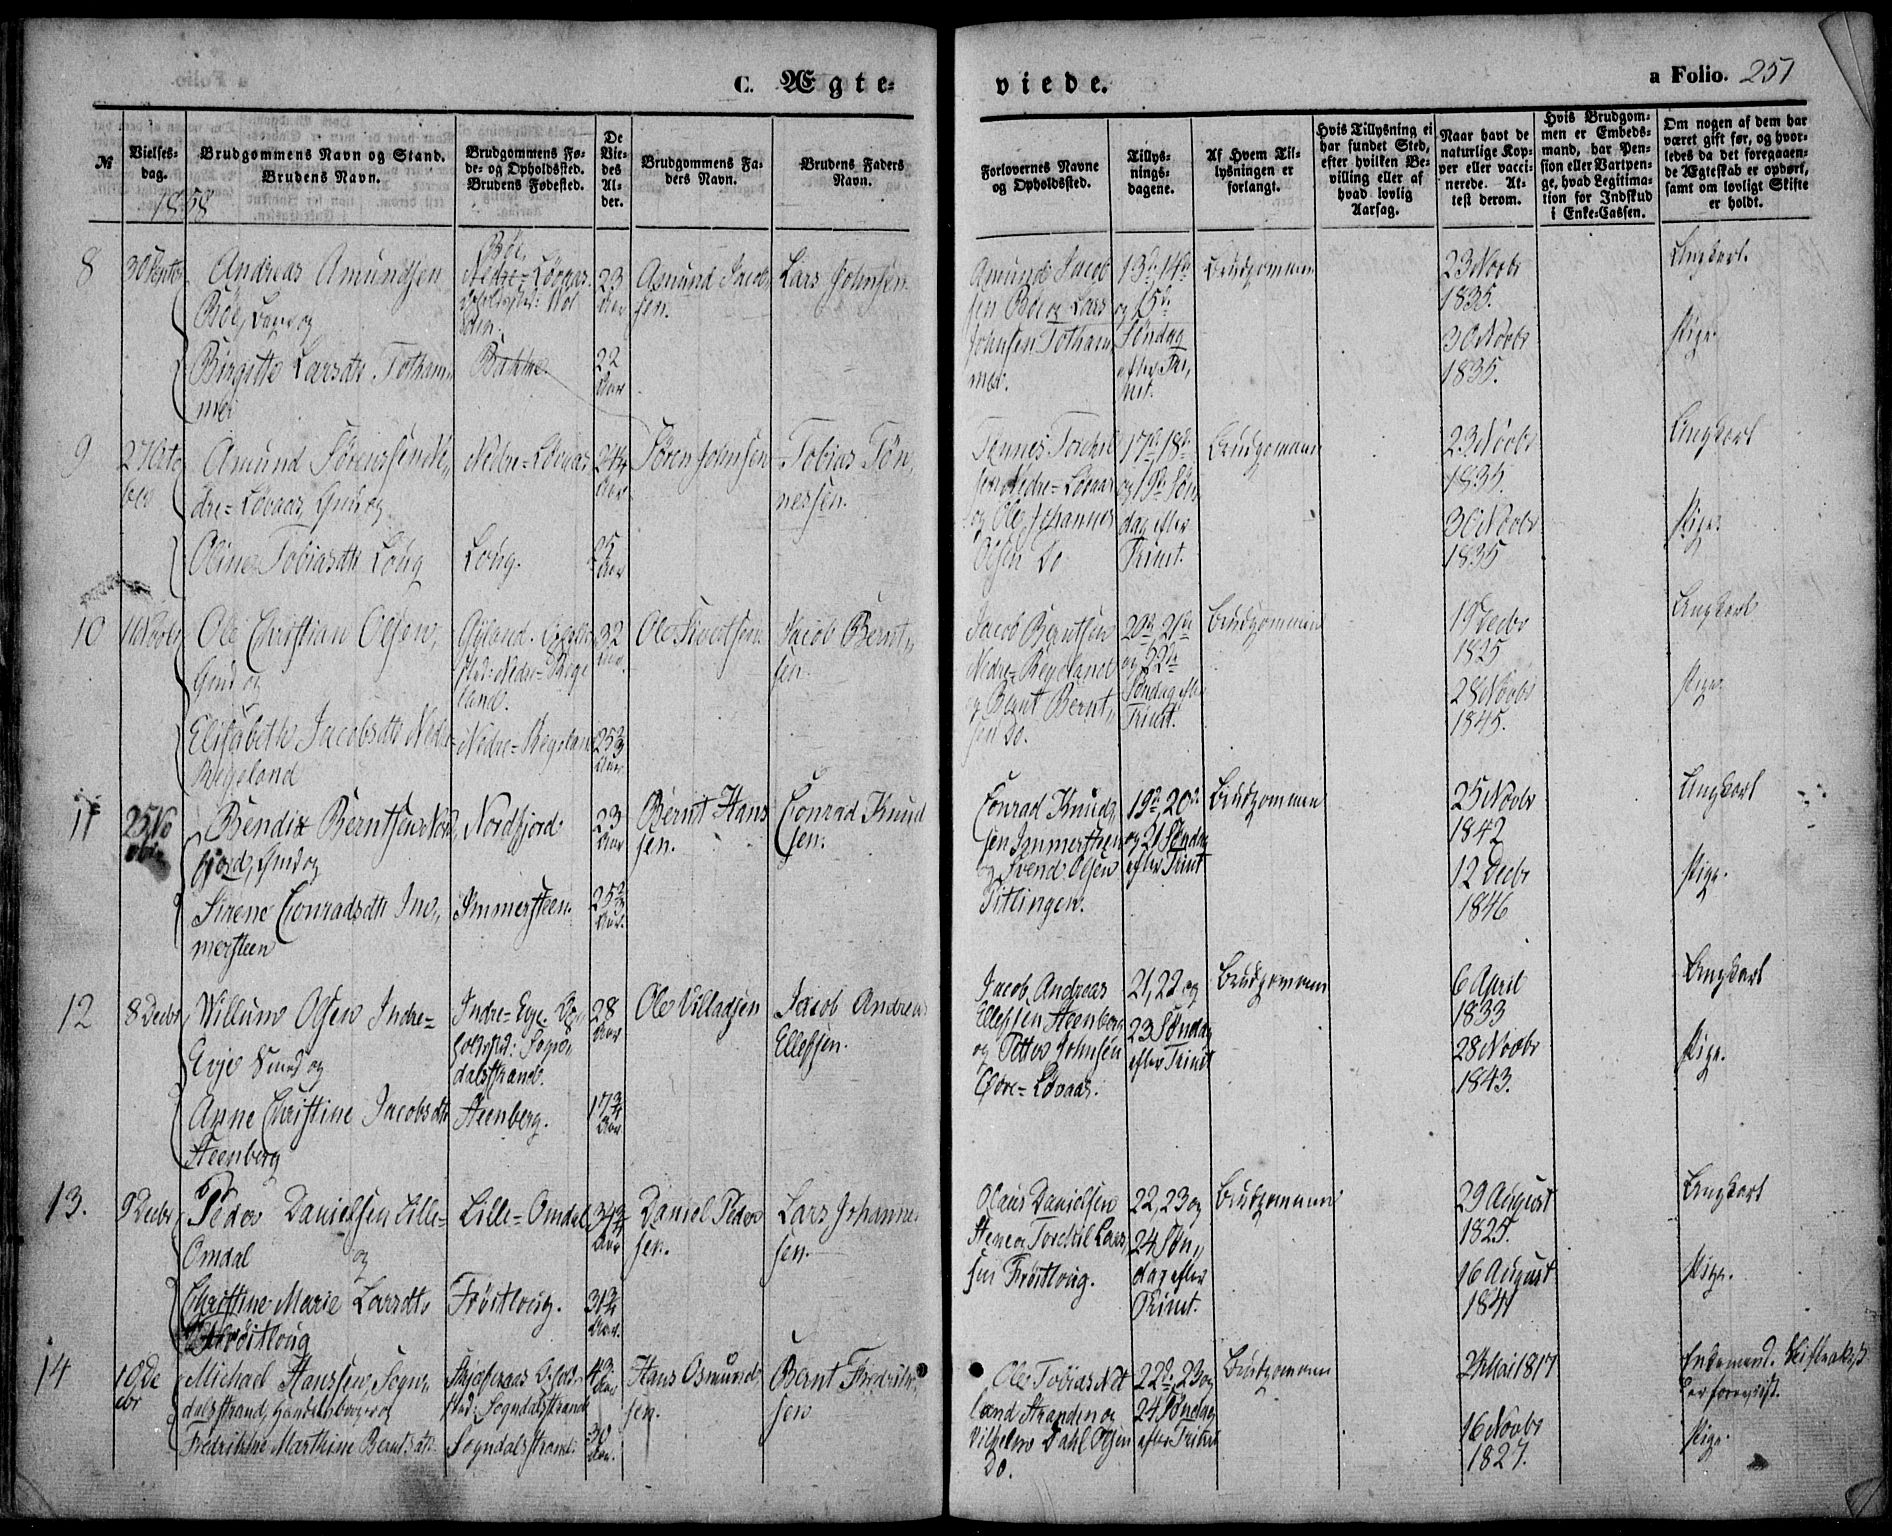 C. Ægte-
viede.
a Folio. 251
№
Vielses-
dag.
1858
Brudgommens Navn og Stand.
Brudens Navn.
Brudgommens Fø-
de- og Opholdssted.
Brudens Fødested.
De
Vie-
des
Al-
der.
Brudgommens Fa-
ders Navn.
Brudens Faders
Navn.
Forlovernes Navne
og Opholdssted.
Tillys-
nings-
dagene.
Af Hvem Til-
lysningen er
forlangt.
Hvis Tillysning ei
har fundet Sted,
efter hvilken Be-
villing eller af
hvad lovlig
Aarsag.
Naar havt de
naturlige Kop-
per eller vacci-
nerede. At-
test derom.
Hvis Brudgom-
men er Embeds-
mand, har Pen-
sion eller Vartpen-
ge, hvad Legitima-
tion for Indskud
i Enke-Cassen.
Om nogen af dem har
været gift før, og hvor-
ledes da det foregaaen-
de Ægteskab er ophørt,
samt om lovligt Skifte
er holdt.
8
Andreas Amundsen
Böe, og
Birgitte Larsdtr Totham,,
mer
Böe,
Nedre-Lövaas.
Bakke.
23
Aar
22
Aar
Amund Jacob,,
sen.
Lars Johnsen
Amund Jacob
sen Böe og Lars
Johnsen Totham,,
mer.
13de, 14de
og 15de
Söndag
efter Tri,,
nit.
Brudgommen
23 Novbr
1835.
30 Novbr
1835.
Ungkarl.
Pige.
9
2 Octo
ber
Amund Sörenssen Ne,,
dre-Lövaas, og
Oline Tobiasdtr Loug
Nedre-Lövaas
Loug.
24
Aar
25
Aar
Sören Johnsen
Tobias Tön,,
nessen.
Tönnes Torkels
sen Nedre-Lövaas
og Ole Johannes
Olsen Do
17de, 18de
og 19de Sön,,
dag efter
Trinit.
Brudgommen
23 Novbr
1835.
30 Novbr
1835
Ungkarl
Pige.
10
Novbr
Ole Christian Olsen,
og
Elisabeth Jacobsdtr Nedre-
Regeland
Nedre-Rege
land.
Nedre-Regeland
32
Aar.
25¾
Aar
Ole Sivertsen
Jacob Bernt,,
sen.
Jacob Berntsen
Nedre-Regeland
og Bernt Bernt,,
sen Do.
20de, 21de
og 22de
Söndag efter
Trinit.
Brudgommen
19 Decbr
1825
28 Novbr
1845.
Ungkarl
Pige
11
25 No
vbr
Bendix Berntsen Nord
fjord, og
Sirene Conradsdtr Im,,
mersteen
Nordfjord
Immersteen.
23
Aar
25¾
Aar.
Bernt Hans
sen.
Conrad Knud
sen.
Conrad Knud,,
sen Immersteen
og Svend Olsen
Titlingen.
19de, 20de
og 21 Söndag
efter Trinit
Brudgommen
25 Novbr
1842
12 Decbr
1846
Ungkarl
Pige.
12
8 Decbr
Willum Olsen Indre-
Evje og
Anne Christine Jacobsdtr
Steenberg
Indre-Evje. Op,,
holdssted: Sogn,,
dalsstrand.
Steenberg.
28
Aar
17¾
Aar
Ole Villadsen
Jacob Andreas
Ellefsen.
Jacob Andreas
Ellefsen Steenberg
og Petter Johnsen
Övre-Lövaas.
21, 22 og
23 Söndag
efter Trinit
Brudgommen
6 April
1833
28 Novbr
1843.
Ungkarl
Pige.
13.
9 Decbr
Peder Danielsen Lille-
Omdal og
Christine Marie Larsdtr
Fröitloug
Lille-Omdal
Fröitloug.
34¾
Aar
31¾
Aar.
Daniel Peder
sen.
Lars Johanne
sen.
Olaus Danielsen
Stene og Torkil Lars,,
sen Fröitloug.
22, 23 og
24 Sön,,
dag efter
Trinit.
Brudgommen
29 August
1825.
16 August
1841
Ungkarl
Pige.
14
10 De
cbr
Michael Hanssen, Sogn,,
dalsstrand, Handelsborger og
Fredrikke Marthine Berntsdtr
Opholds-
sted: Sogndalsstrand
Sogndalsstrand.
43
Aar
30
Aar.
Hans Osmund
sen.
Bernt Fredrik
sen
Ole Tobias Net
land Stranden og
Vilhelm Dahl Olsen
Do.
22de, 23 og
24 Söndag
efter Trinit
Brudgommen
24 Mai 1817
16 Novbr
1827.
Enkemand.
Pige.